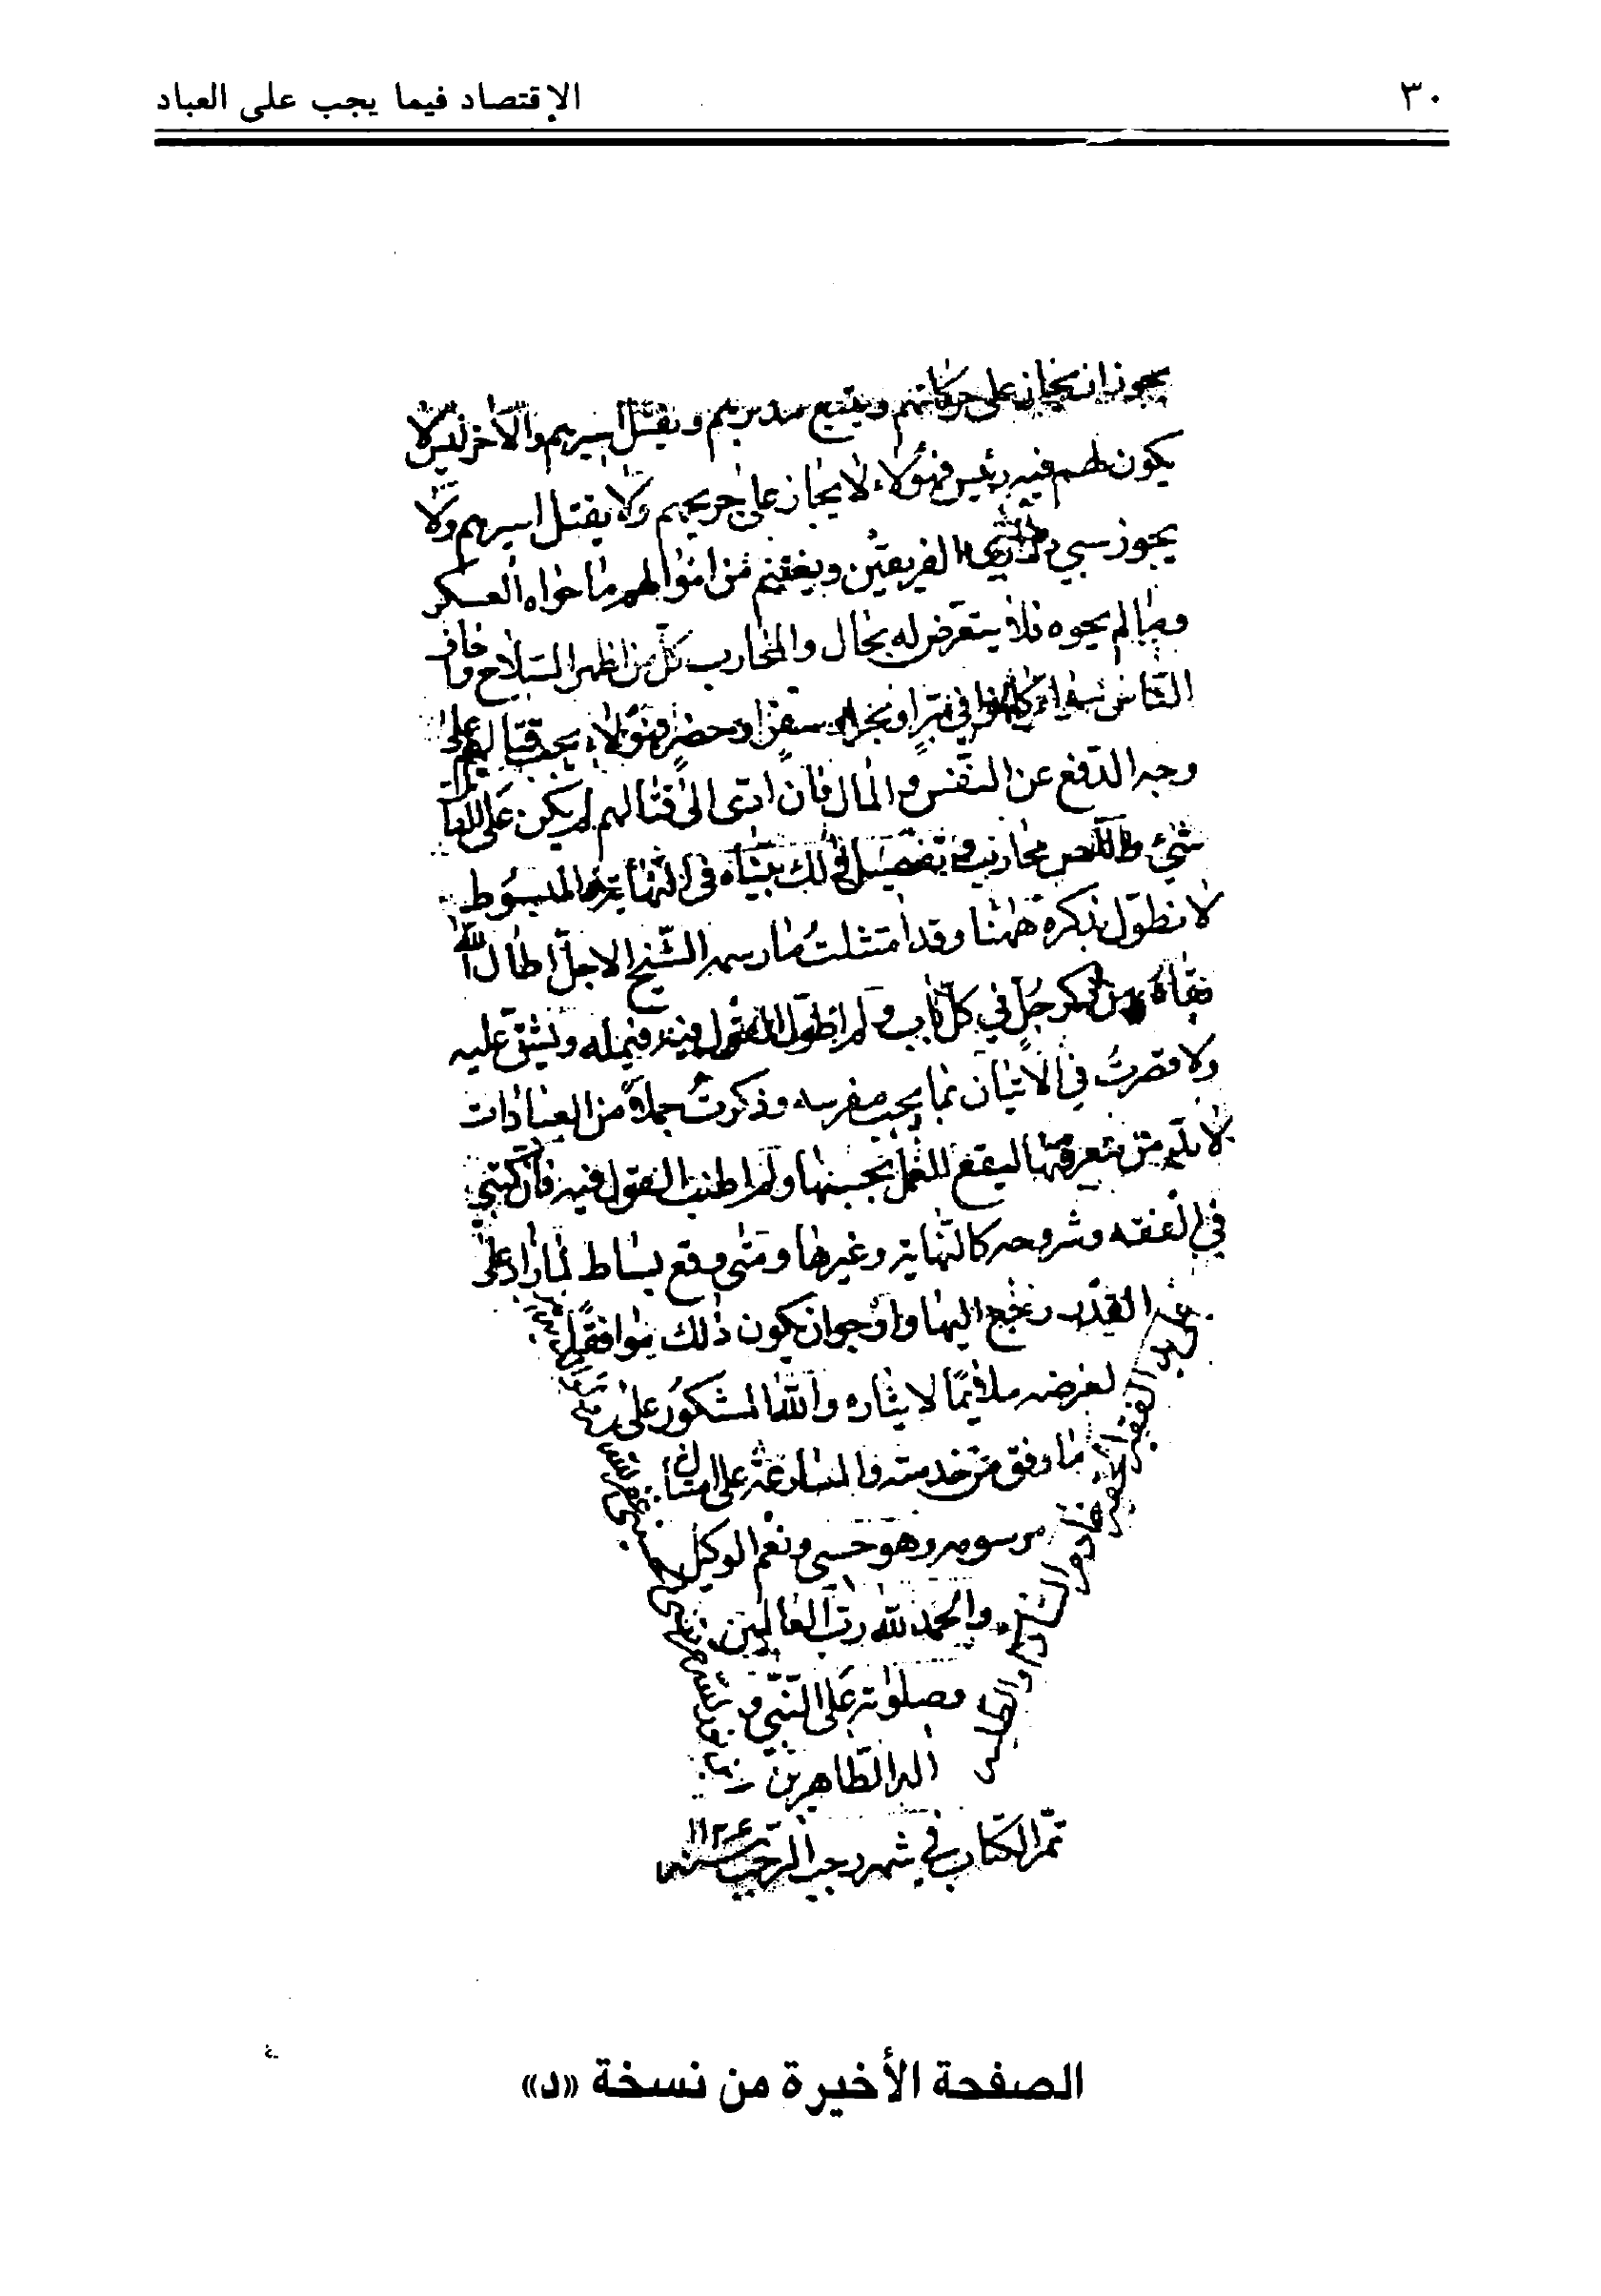 ٣٠
الإقتصاد فيما يجب على العباد
يجوز ان يجاز على جرحاهم ويتبع مدبرهم ويقتل اسيرهم والاخر ليس لا
يكون لهم فيه رئيس فهؤلاء لا يجاز على جريحهم ولا يقتل اسيرهم ولا
يجوز سبي الفريقين ويغتنم من اموالهم ما حواه العسكر
وما لم يحوه فلا يتعرض له بحال والمحارب كل من اظهر السلاح واخاف
الناس سواء كانوا في بر او بحر او سفر او حضر فهؤلاء يجب قتالهم على
وجه الدفع عن النفس والمال فان ادى الى قتالهم لم يكن على
شئ وتفصيل ذلك بيناه في النهاية والمبسوط
لا نطول بذكره ههنا وقد امتثلت ما رسمه الشيخ الاجل اطال الله
بقاه من ذكر جمل في كل باب ولم اطول القول فيه فيمله ويشق عليه
ولا قصرت في الاتيان بما يجب معرفته وذكرت جملة من العبادات
لا بد من معرفتها ليقع العمل بحسبها ولم اطنب القول فيه فان كتبي
في الفقه وشروحه كالنهاية وغيرها ومتى وقع نشاط لما زاد على
هذا القدر رجع اليها وارجو ان يكون ذلك موافقا
لغرضه ملائما لايثاره والله المشكور على
ما وفق من خدمته والمسارعة على امتثال
مرسومه وهو حسبي ونعم الوكيل
والحمد لله رب العالمين
وصلوته على النبي و
اله الطاهرين
على يد الفقير الحقير خادم
تم الكتاب في شهر رجب المرجب سنه
الصفحة الأخيرة من نسخة «د»